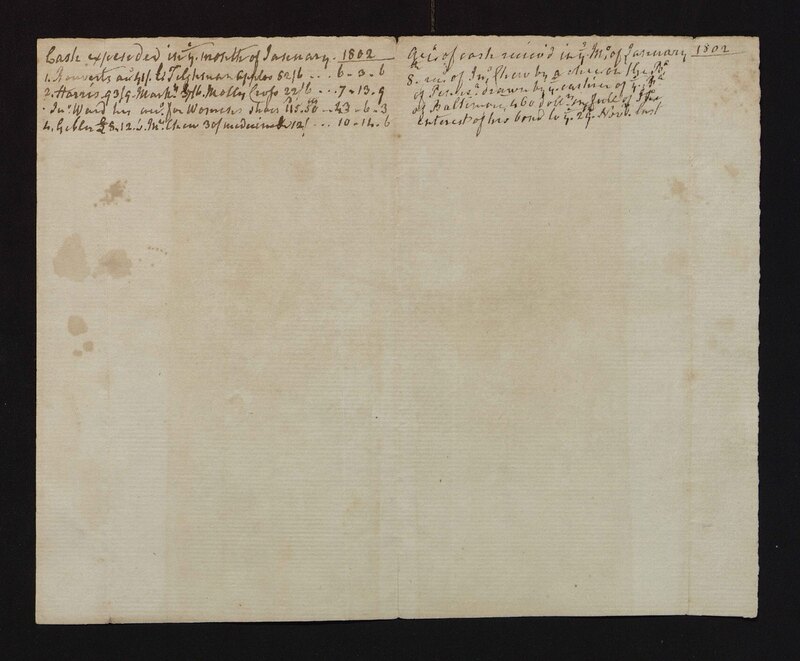 Cash expended in yͤ month of January. 1802
1. 41/. Tilghman apples 82/6 ... 6-3-6
2. Harris 93/9. Markᵗ 37/6. Molly Cross 22/6 ... 7-13-9
Jnᵒ Ward his accᵗ for Womens shoes 115.50 - 43-6-3
4. 8.12.6 Mʳ Chew 3 of medicine 12/ ... 10-14-6
Accᵗ of cash receiv'd in yͤ Mᵒ of January 1802
8. recᵈ of by a check on the Bᵏ
of drawn by yͤ cashier of yͤ Bᵏ
of Baltimore, 460 dollʳˢ in full of the
interest of his bond to yͤ 29 Novʳ last